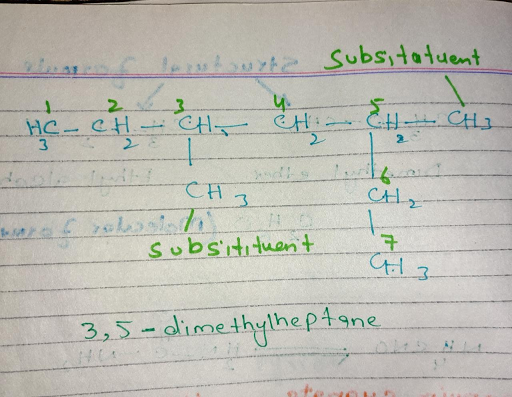 Subsitatuent
1 2 3 4 5
H3C - CH2 - CH2 - CH2 - CH2 - CH3
6
CH3 CH2
subsitituent 7
CH3
3,5-dimethylheptane